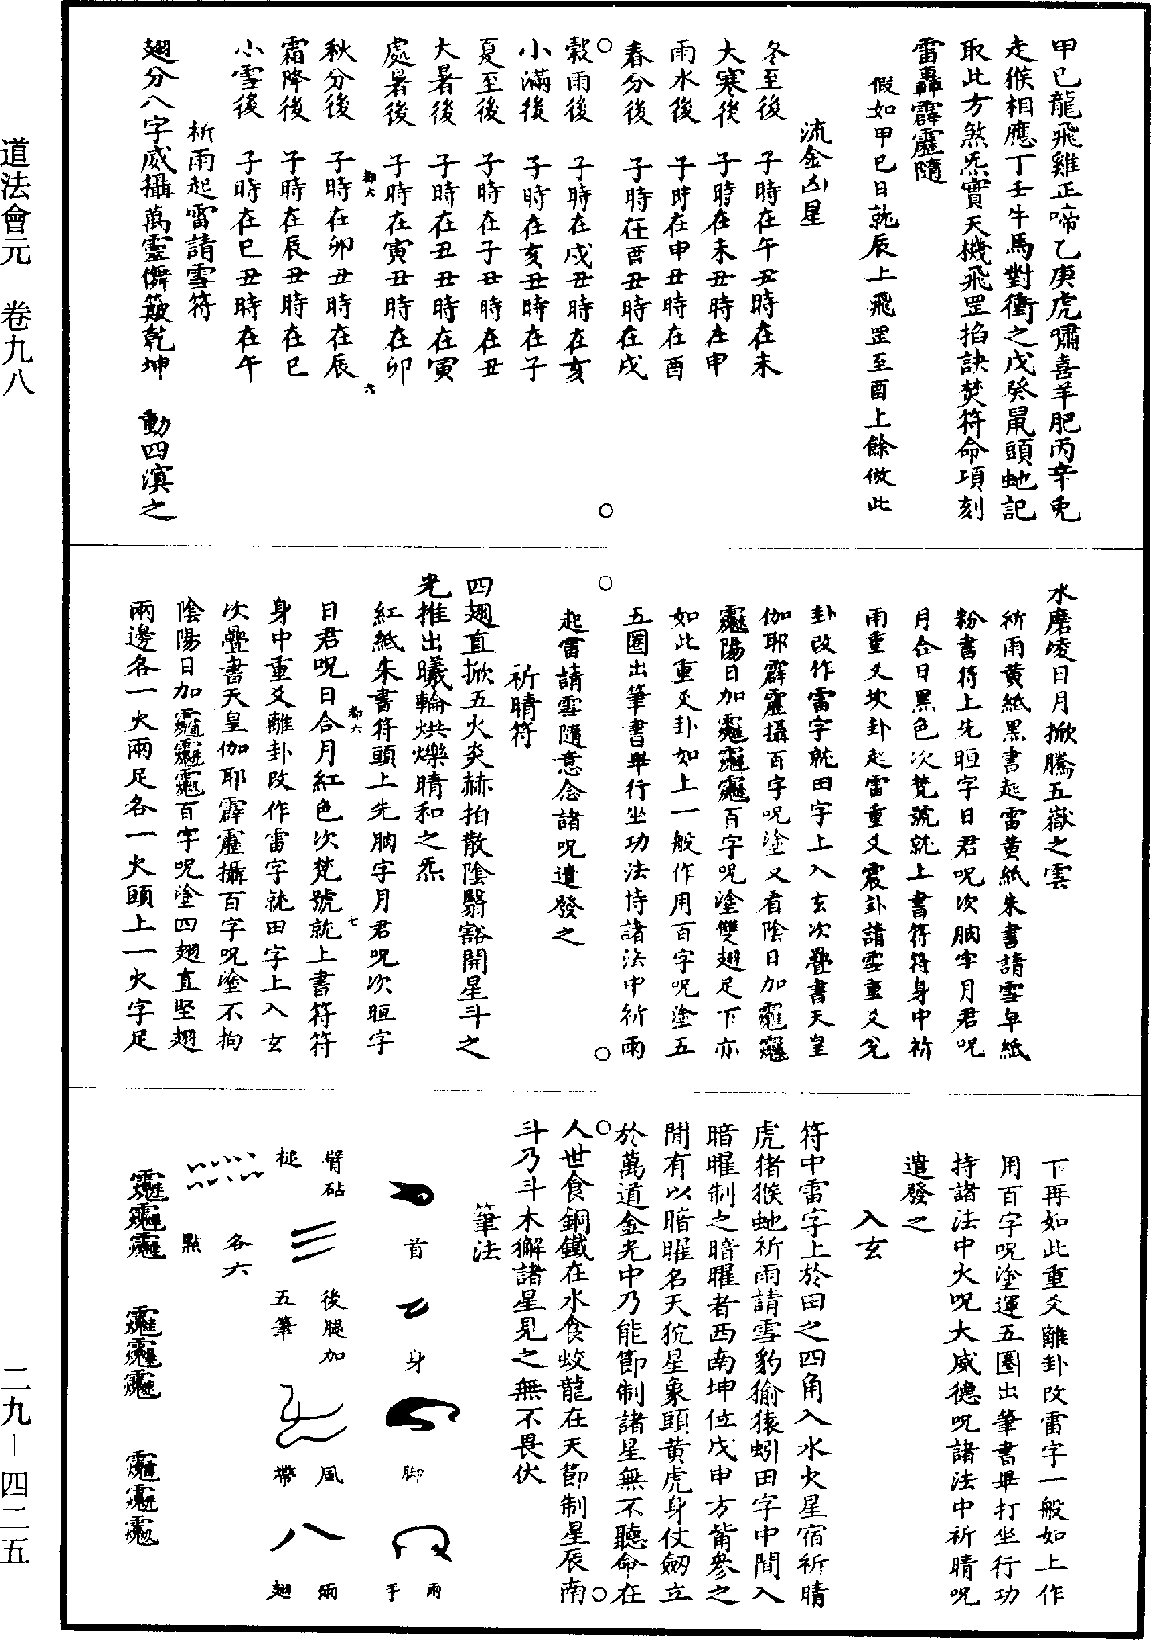 甲己龍飛雞正啼乙庚虎嘯喜羊肥丙辛兔
走猴相應丁壬牛馬對衝之戊癸鼠頭虵記
取此方煞炁實天機飛罡掐訣焚符命項刻
雷轟霹靂隨
假如甲己日就辰上飛罡至酉上餘倣此
流金凶星
冬至後 子時在午丑時在未
大寒後 子時在未丑時在申
雨水後 子時在申丑時在酉
春分後 子時在酉丑時在戌
穀雨後 子時在戌丑時在亥
小滿後 子時在亥丑時在子
夏至後 子時在子丑時在丑
大暑後 子時在丑丑時在寅
處暑後 子時在寅丑時在卯
秋分後 子時在卯丑時在辰
霜降後 子時在辰丑時在巳
小雪後 子時在巳丑時在午
祈雨起雷請雪符
翅分八字威攝萬靈儕簸乾坤 動四溟之
水磨凌日月掀騰五嶽之雲
祈雨黃紙黑書起雷黃紙朱書請雪皁紙
粉書符上先晅字日君呪次朏字月君呪
月合日黑色次梵號就上書符符身中祈
雨重爻坎卦起雷重爻震卦請雪重爻兌
卦改作雷字就田字上入玄次疊書天皇
伽耶霹靂攝百字呪塗又看陰日加
陽日加 百字呪塗雙翅足下亦
如此重爻卦如上一般作用百字呪塗五
五圈出筆書畢行坐功法恃諸法中祈雨
起雷請雪隨意念諸呪遣發之
祈晴符
四翅直掀五火炎赫拍散陰翳豁開星斗之
光推出曦輪烘爍晴和之炁
紅紙朱書符頭上先朏字月君呪次晅字
日君呪日合月紅色次梵號就上書符符
身中重爻離卦改作雷字就田字上入玄
次疊書天皇伽耶霹靂攝百字呪塗不拘
陰陽日加 百字呪塗四翅直堅翅
兩邊各一火兩足各一火頭上一火字足
下再如此重爻離卦改雷字一般如上作
用百字呪塗運五圈出筆書畢打坐行功
持諸法中火呪大威德呪諸法中祈晴呪
遣發之
入玄
符中雷字上於田之四角入水火星宿祈晴
虎猪猴虵祈雨請雪豹㺄猿蚓田字中間入
暗曜制之暗曜者西南坤位戊申方觜參之
閒有以暗曜名天狁星象頭黃虎身仗劒立
於萬道金光中乃能節制諸星無不聽命在
人世食銅鐵在水食蛟龍在天節制星辰南
斗乃斗木獬諸星見之無不畏伏
筆法
首 身 脚 兩手
臂砧 後腿加 風 兩
槌 五筆 帶 翅
各六
點
道法會元 卷九八
二九—四二五